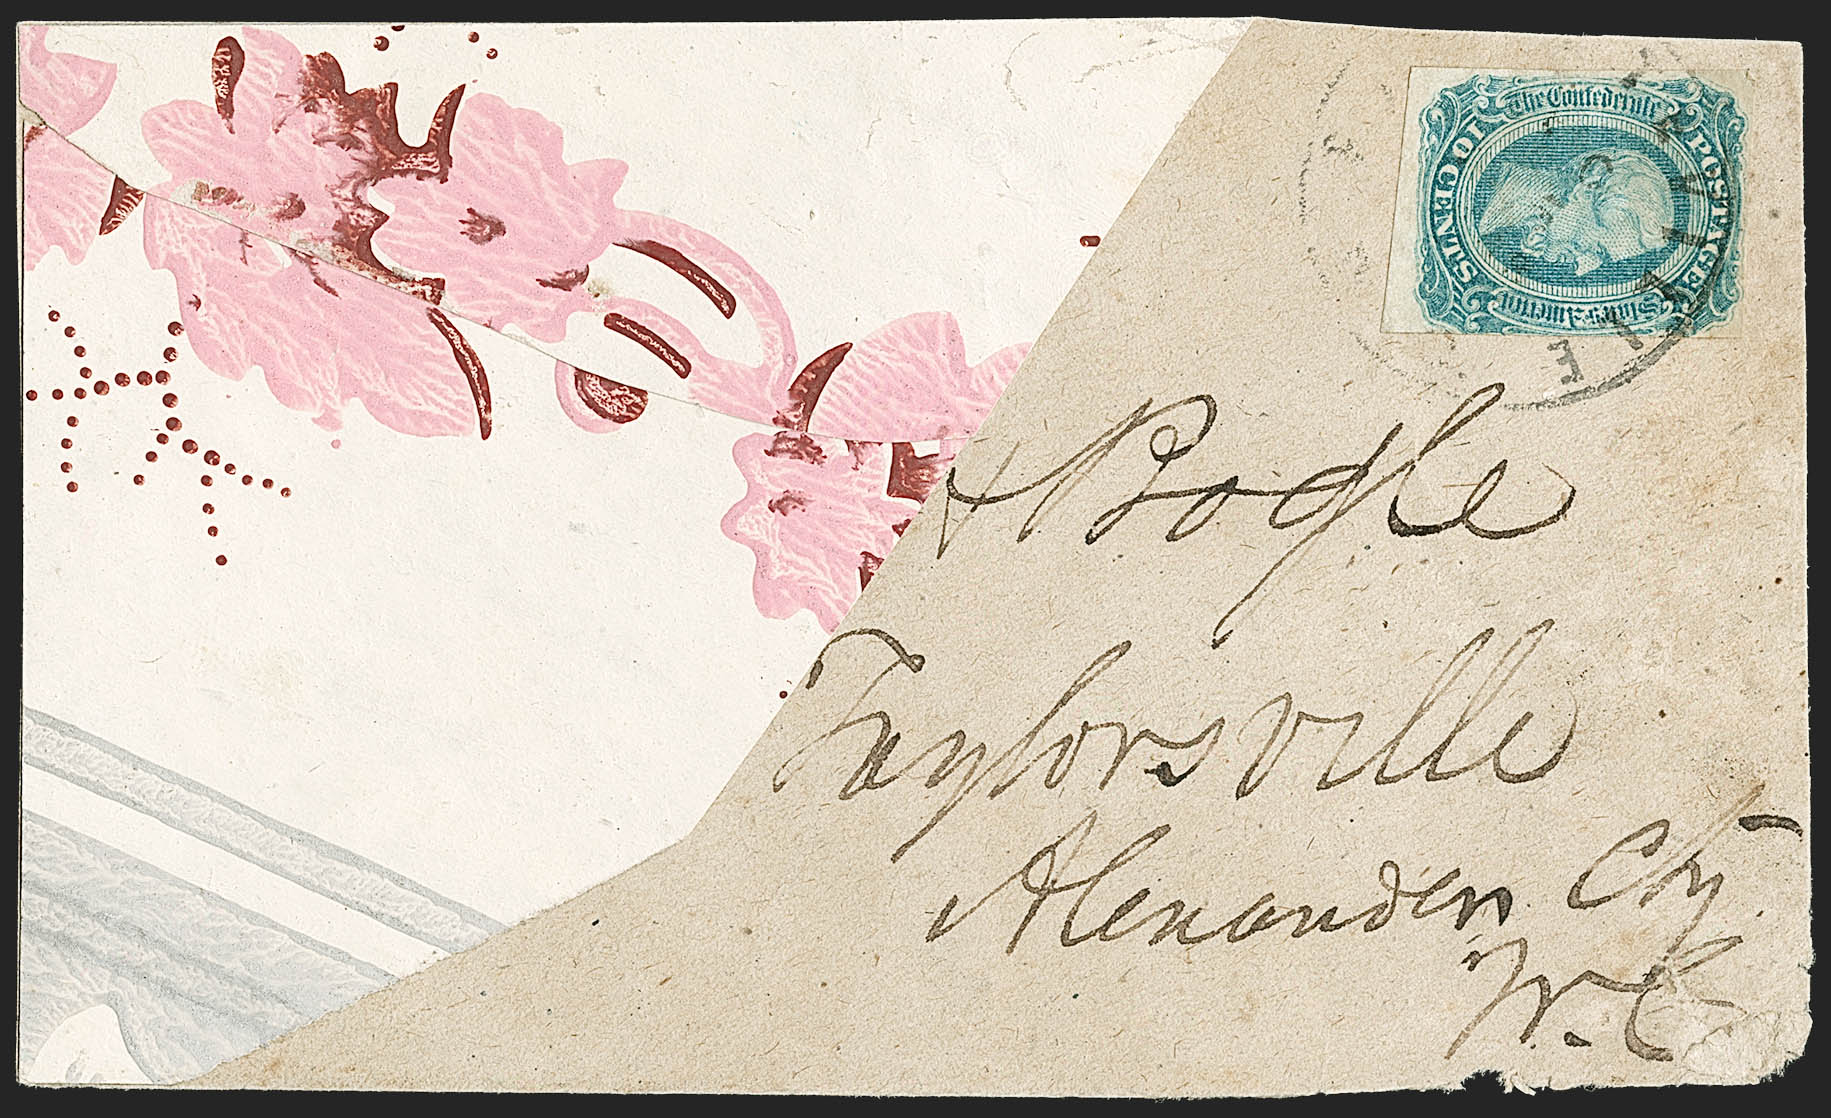 The Confederate
States of America
POSTAGE
10 CENTS
A Bogle
Taylorsville
Alexander Cty
N. C